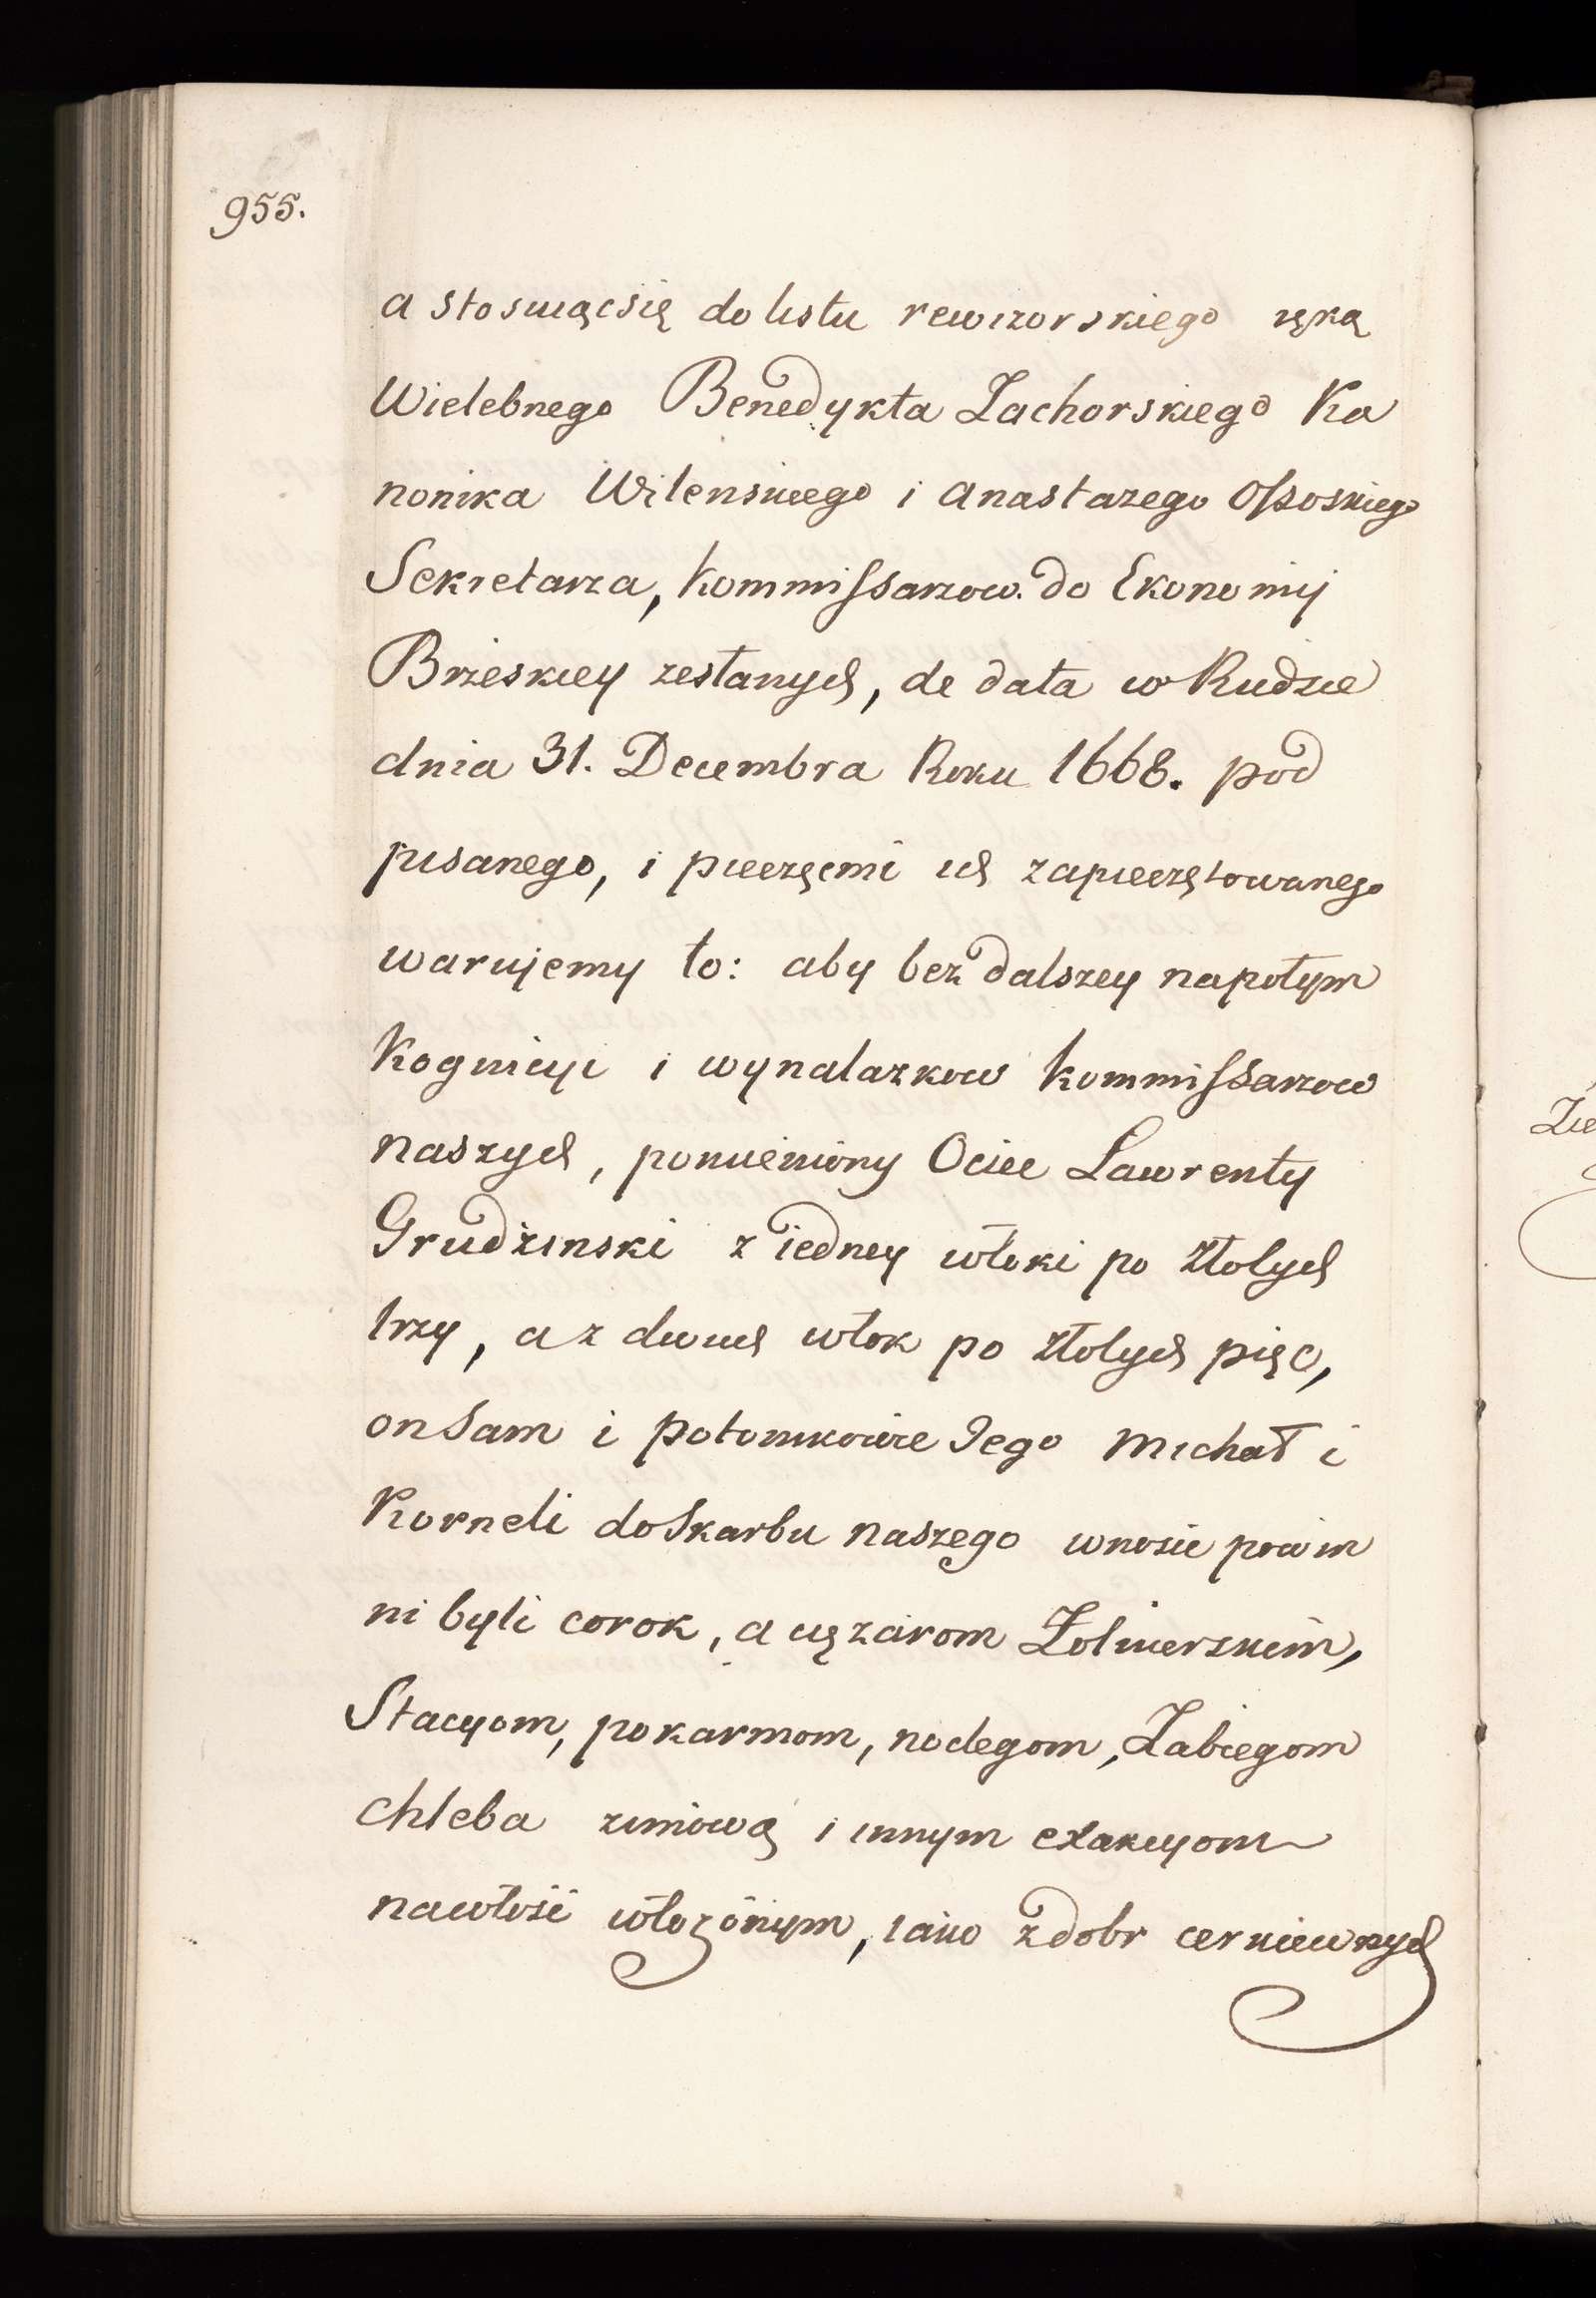 955.
a stosuiąc się do listu rewizorskiego ręką
Wielebnego Benedykta Żachorskiego Ka
nonika Wilenskiego i Anastazego Ossoskiego
Sekretarza, Kommissarzow do Ekonomij
Brzeskiey zesłanych, de data w Rudzie
dnia 31. Decembra Roku 1668. pod
pisanego, i pieczęcmi ich zapieczętowanego
warujemy to: aby bez dalszey napotym
Kognicyi i wynalazkow Kommissarzow
naszych, pomieniony Ociec Lawrenty
Grudzinski z iedney włoki po złotych
trzy, a z dwuch włok po złotych pięc,
on sam i potomkowie Jego Michał i
Korneli do Skarbu naszego wnosic powin
ni byli co rok, a cięzarom Żolnierskim,
Stacyom, pokarmom, noclegom, Zabiegom
chleba zimową i innym exakcyom
na włość włożonym, iako z dobr cerkiewnych
Zie